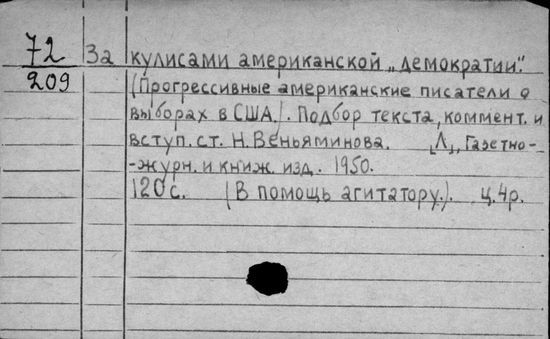 72 За кулисами американской „демократии".
209 (Прогрессивные американские писатели о
выборах в США). Подбор текста, коммент. и
вступ. ст. Н. Веньяминова. [Л], Газетно-
-журн. и книж. изд. 1950.
120 с. (В помощь агитатору.). ц. 4 р.